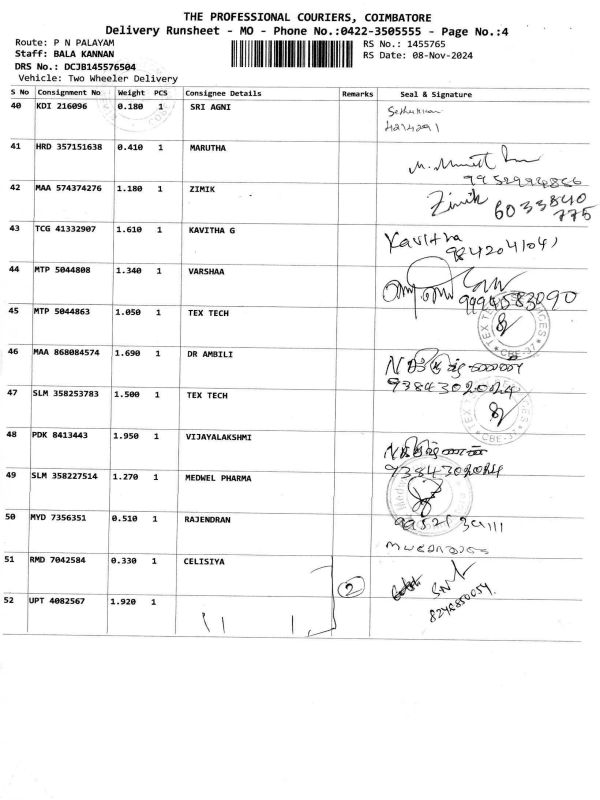 THE PROFESSIONAL COURIERS, COIMBATORE
Delivery Runsheet - MO - Phone No.:0422-3505555 - Page No.:4
Route: P N PALAYAM
RS No.: 1455765
Staff: BALA KANNAN
RS Date: 08-Nov-2024
DRS No.: DCJB145576504
Vehicle: Two Wheeler Delivery
S No Consignment No Weight PCS Consignee Details Remarks Seal & Signature
40 KDI 216096 0.180 1 SRI AGNI
41 HRD 357151638 0.410 1 MARUTHA
42 MAA 574374276 1.180 1 ZIMIK Zimik
6033840
775
43 TCG 41332907 1.610 1 KAVITHA G Kavitha
9842041041
44 MTP 5044808 1.340 1 VARSHAA
9994583090
45 MTP 5044863 1.050 1 TEX TECH
CBE-37
46 MAA 868084574 1.690 1 DR AMBILI
9384302024
47 SLM 358253783 1.500 1 TEX TECH
CBE-37
48 PDK 8413443 1.950 1 VIJAYALAKSHMI
9384302024
49 SLM 358227514 1.270 1 MEDWEL PHARMA
50 MYD 7356351 0.510 1 RAJENDRAN
51 RMD 7042584 0.330 1 CELISIYA 2
52 UPT 4082567 1.920 1 11 1
8248850054.